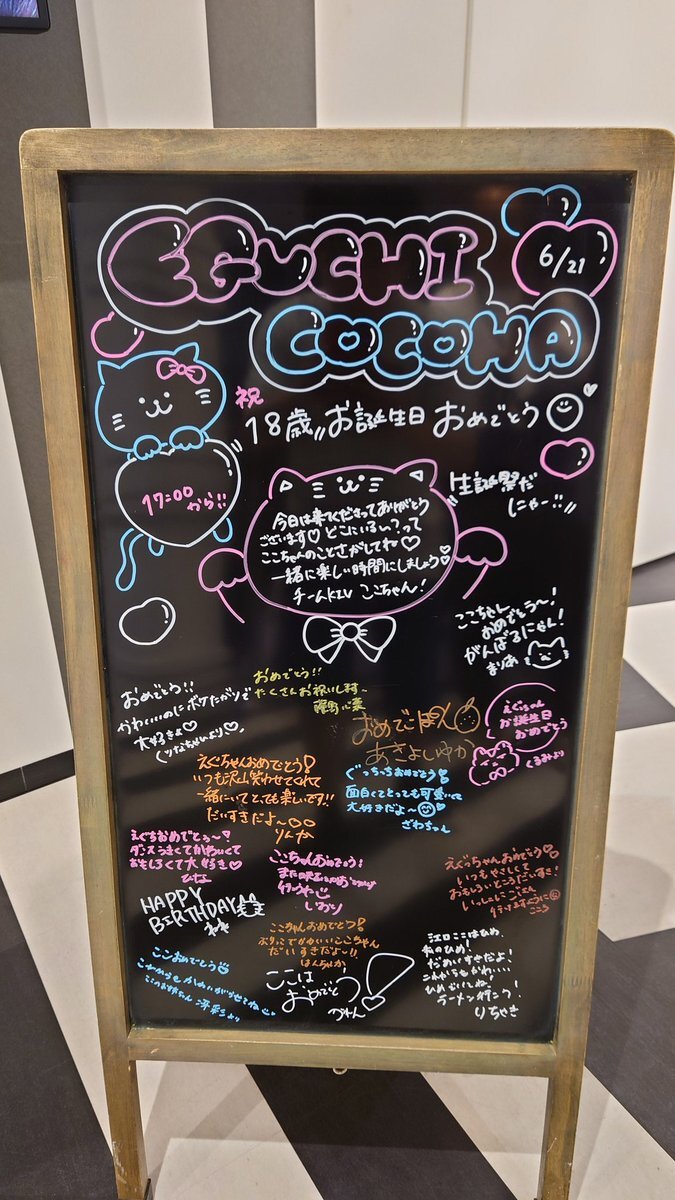 EGUCHI
COCOHA
6/21
祝
18歳 お誕生日 おめでとう
17:00
から!!
生誕祭だ
にゃー!!
今日は来てくださってありがとう
ございます♡ どこにいるい?って
ここちゃんのことさがしてね♡
一緒に楽しい時間にしましょう
チームKIV ここちゃん!
ここちゃん
おめでとう〜!
がんばるにゃん!
まりあ
おめでとう!!
かわいいのにボケたがりで
大好きよ♡
おめでとう!!
たくさんお祝いし村〜
おめでぽん
あきよしゆか
えぐちゃん
お誕生日
おめでとう
くるみより
えぐちゃんおめでとう!
いつも沢山笑わせてくれて
一緒にいてとっても楽しいです!!
だいすきだよ〜
りんか
ぐっちっちおめでとう!
面白くてとっても可愛いくて
大好きだよ〜
ざわちゃん
えぐちおめでとう〜!
ダンスうまくてかわいくて
おもしろくて大好き♡
ひな
ここちゃんおめでとう!
しおり
えぐっちゃんおめでとう♡
いつもやさしくて
おもしろいところだいすき!
こころ
HAPPY
BIRTHDAY
ここちゃんおめでとう!
かわいいここちゃん
だいすきだよ〜!!
ここおめでとう
ここは
おめでとう
江口ここはひめ、
私のひめ!
だめいすやだよ!
ひめでいいね。
ラーメン行こう!
りちゃき